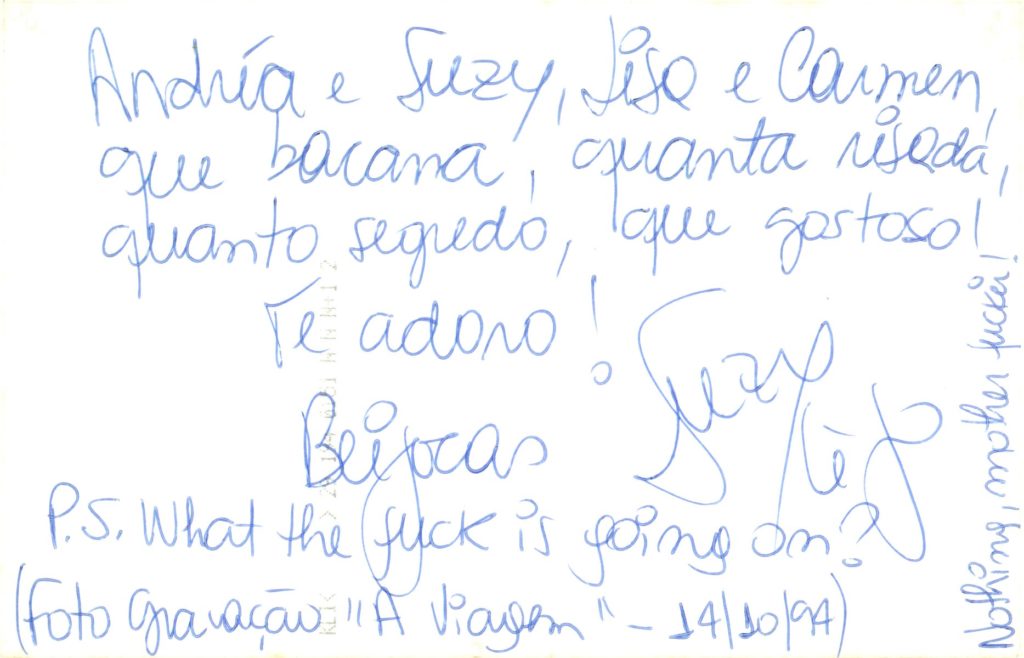 Andréa e Suzy, Lisa e Carmen,
que bacana, quanta risada,
quanto segredo, que gostoso!
Te adoro!
Beijocas Suzy
P.S. What the fuck is going on?
(Foto Gravação "A Viagem" - 14/10/94)
Nothing, mother fucker!